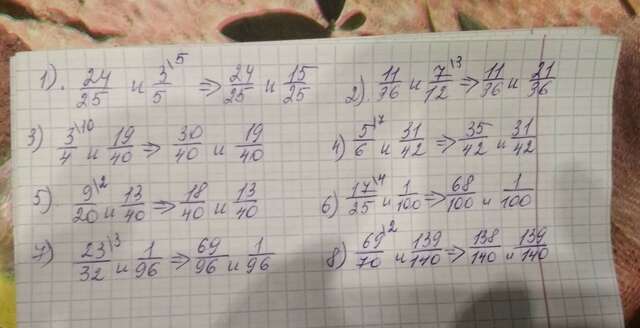 1). 24/25 и 3\5/5 ⇒ 24/25 и 15/25 2). 11/36 и 7\3/12 ⇒ 11/36 и 21/36
3) 3\10/4 и 19/40 ⇒ 30/40 и 19/40 4) 5\7/6 и 31/42 ⇒ 35/42 и 31/42
5). 9\2/20 и 13/40 ⇒ 18/40 и 13/40 6) 17\4/25 и 1/100 ⇒ 68/100 и 1/100
7) 23\3/32 и 1/96 ⇒ 69/96 и 1/96 8) 69\2/70 и 139/140 ⇒ 138/140 и 139/140